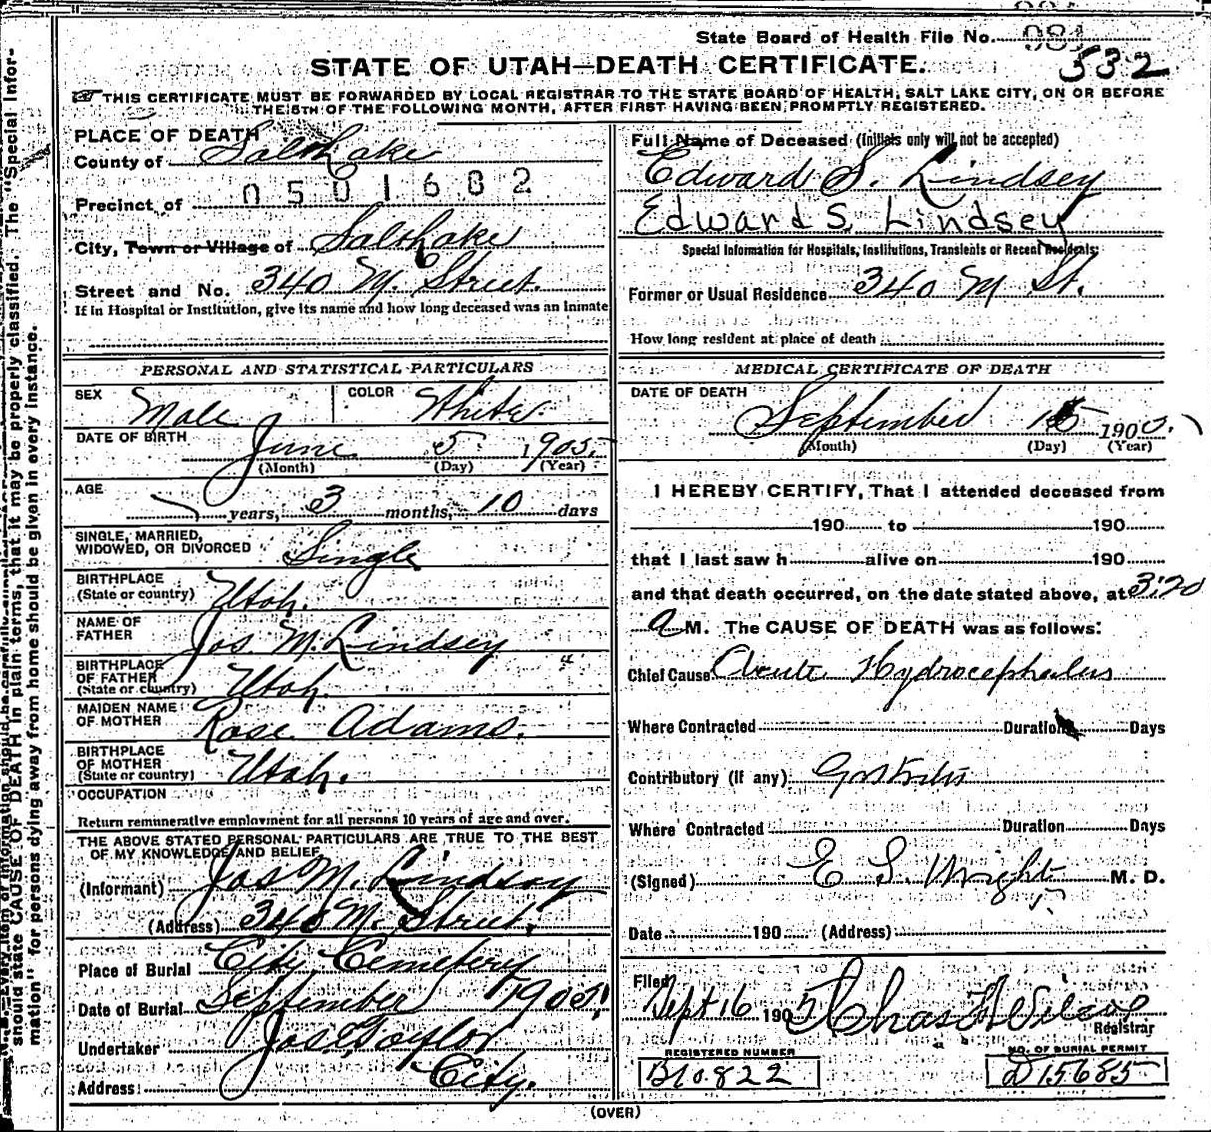 State Board of Health File No. 981
532
STATE OF UTAH—DEATH CERTIFICATE.
THIS CERTIFICATE MUST BE FORWARDED BY LOCAL REGISTRAR TO THE STATE BOARD OF HEALTH, SALT LAKE CITY, ON OR BEFORE
THE 5TH OF THE FOLLOWING MONTH, AFTER FIRST HAVING BEEN PROMPTLY REGISTERED.
PLACE OF DEATH
County of Salt Lake
0501682
Precinct of
City, Town or Village of Salt Lake
Street and No. 340 M. Street.
If in Hospital or Institution, give its name and how long deceased was an inmate
Full Name of Deceased (Initials only will not be accepted)
Edward S. Lindsey
Edward S. Lindsey
Special Information for Hospitals, Institutions, Transients or Recent Residents:
Former or Usual Residence 340 M St.
How long resident at place of death
PERSONAL AND STATISTICAL PARTICULARS
SEX Male
COLOR White
DATE OF BIRTH June 5 1905
(Month) (Day) (Year)
AGE
years, 3 months, 10 days
SINGLE, MARRIED,
WIDOWED, OR DIVORCED Single
BIRTHPLACE
(State or country) Utah.
NAME OF
FATHER Jos. M. Lindsey
BIRTHPLACE
OF FATHER
(State or country) Utah.
MAIDEN NAME
OF MOTHER Rose Adams.
BIRTHPLACE
OF MOTHER
(State or country) Utah.
OCCUPATION
Return remunerative employment for all persons 10 years of age and over.
THE ABOVE STATED PERSONAL PARTICULARS ARE TRUE TO THE BEST
OF MY KNOWLEDGE AND BELIEF
(Informant) Jos M. Lindsay
(Address) 340 M. Street.
Place of Burial City Cemetery
Date of Burial September 1905
Undertaker Jos. E. Taylor
Address: City.
MEDICAL CERTIFICATE OF DEATH
DATE OF DEATH
September 15 1905.
(Month) (Day) (Year)
I HEREBY CERTIFY, That I attended deceased from
190 to 190
that I last saw h alive on 190
and that death occurred, on the date stated above, at 3:20
A M. The CAUSE OF DEATH was as follows:
Chief Cause Acute Hydrocephalus
Where Contracted Duration Days
Contributory (if any) Gastritis
Where Contracted Duration Days
(Signed) E S. Wright M. D.
Date 190 (Address)
Filed
Sept 16 1905 Chas F Wilcox
Registrar
REGISTERED NUMBER
B10.822
NO. OF BURIAL PERMIT
D15685
(OVER)
N. B.—Every item of information should be carefully
should state CAUSE OF DEATH in plain terms, that it may be properly classified. The "Special Infor-
mation" for persons dying away from home should be given in every instance.